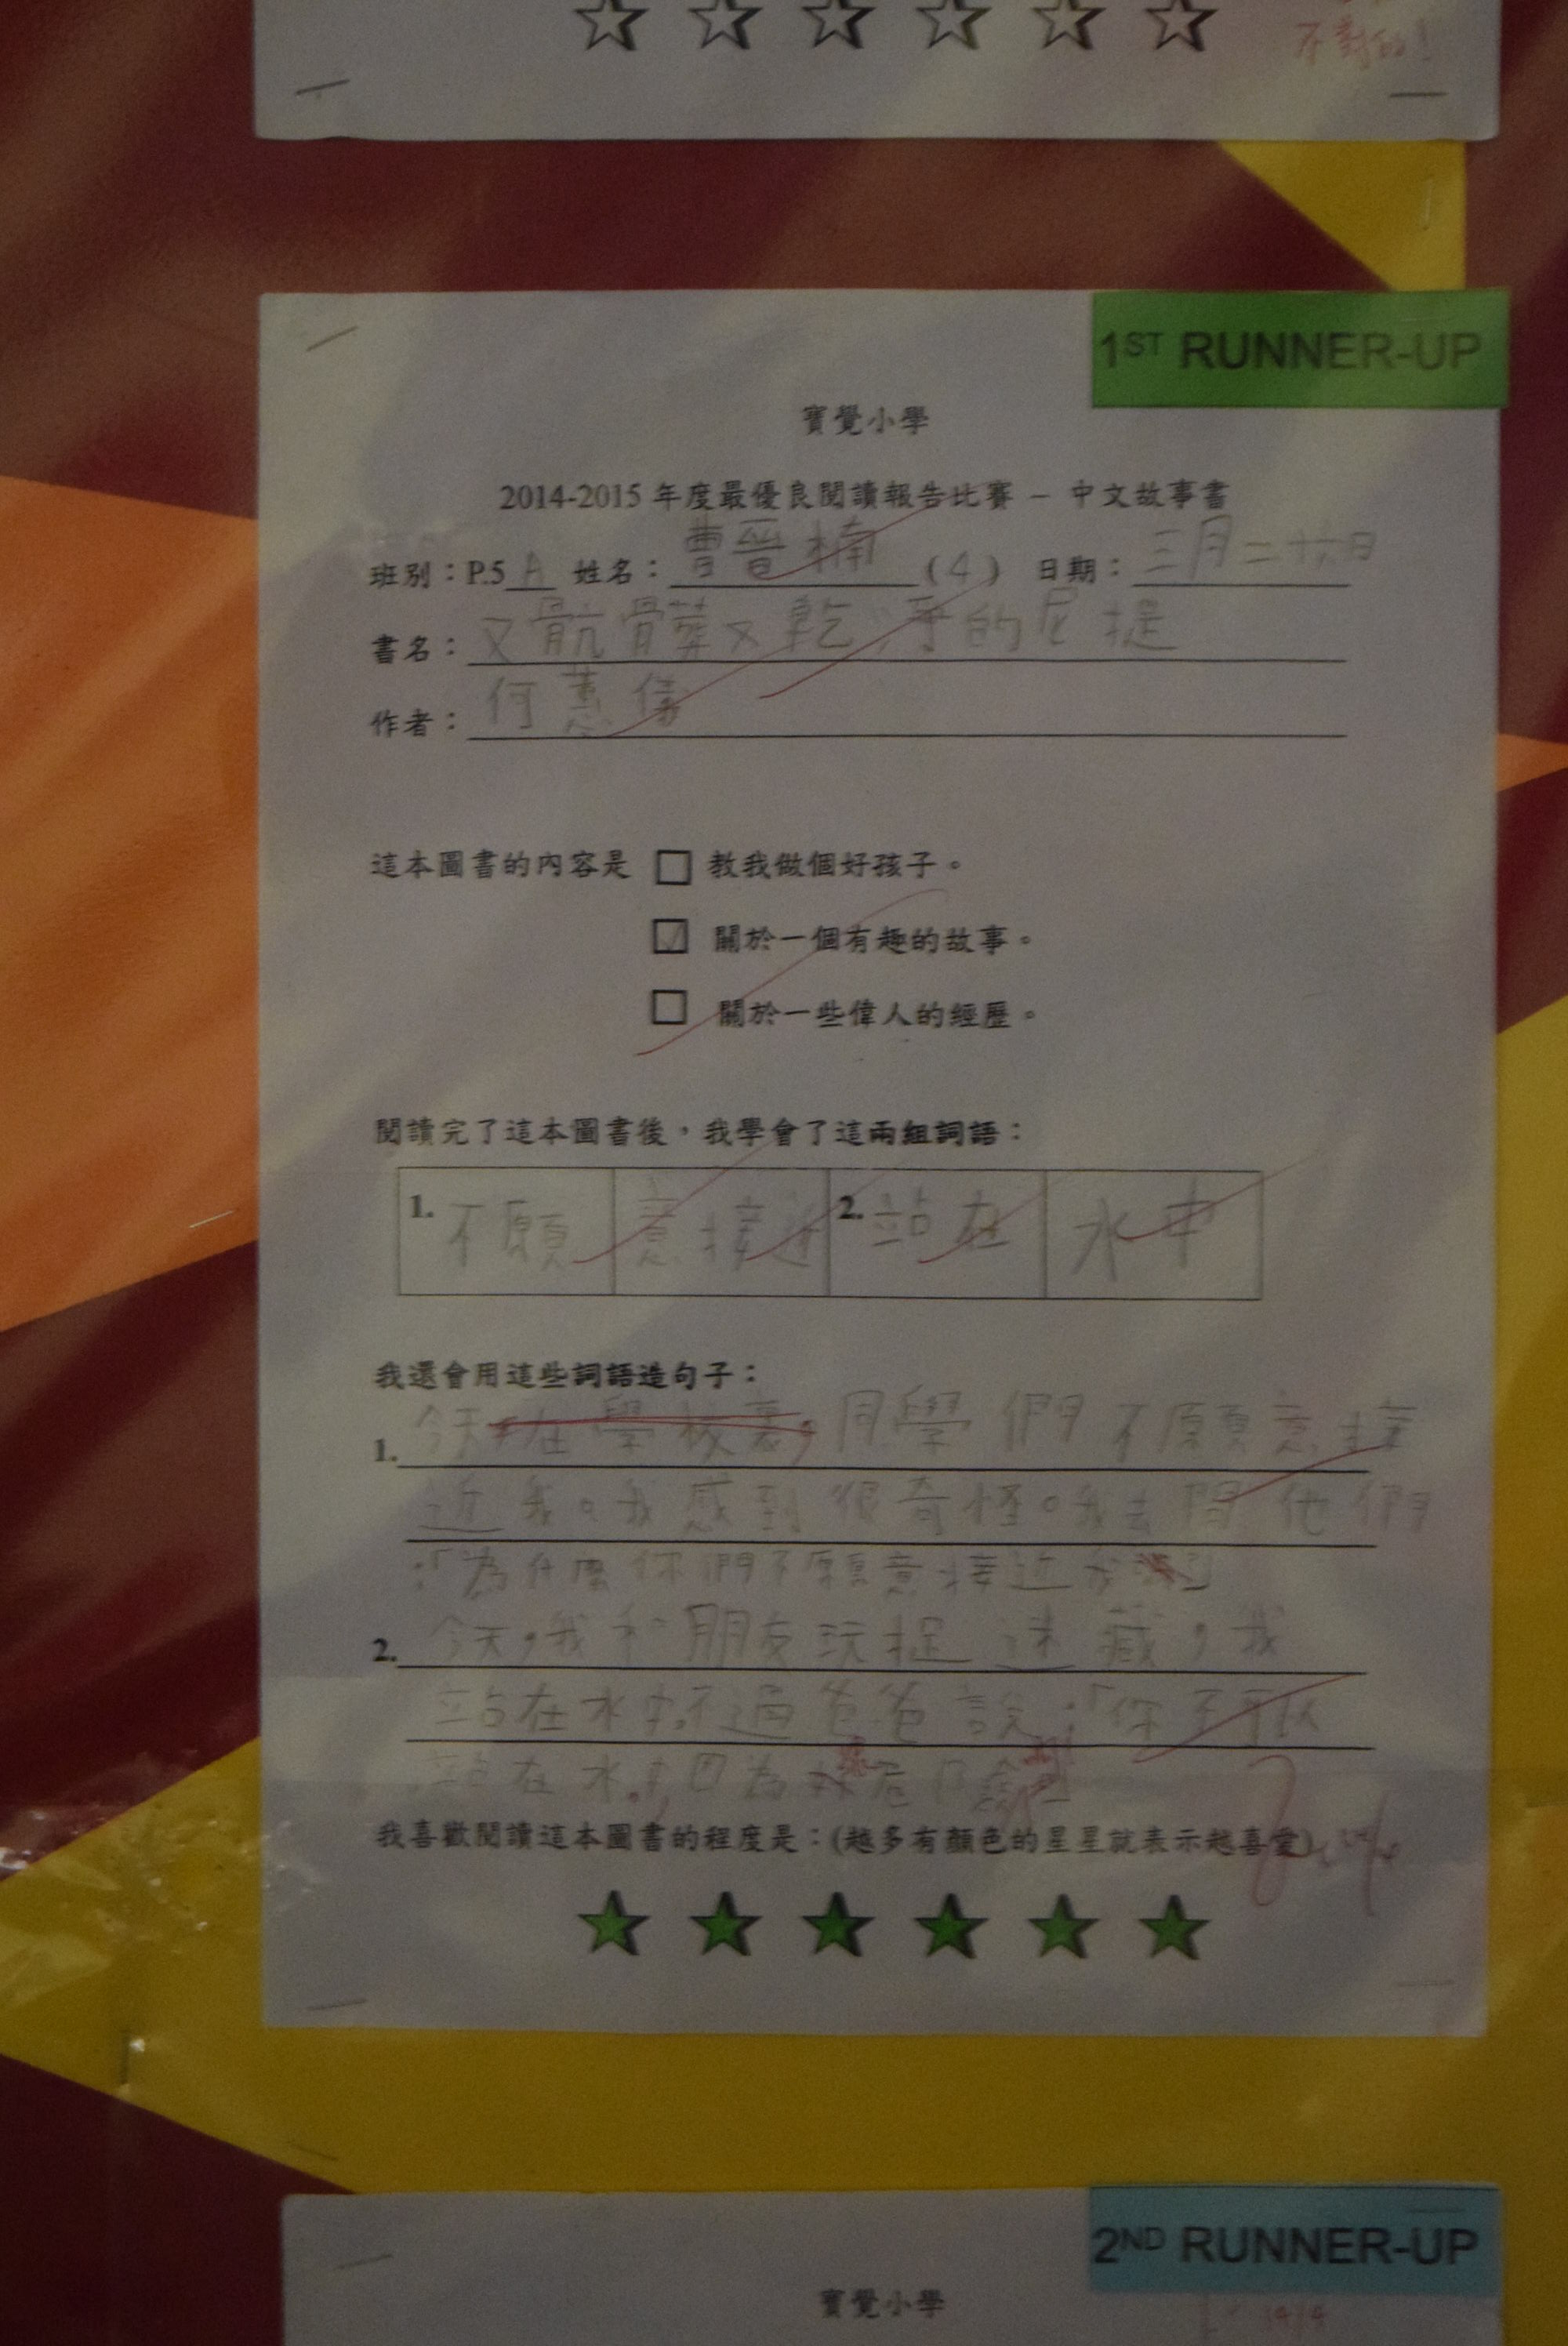 不對的！
1ST RUNNER-UP
寶覺小學
2014-2015 年度最優良閱讀報告比賽 － 中文故事書
班別：P.5 A 姓名：曹晉楠 (4) 日期：三月二十六日
書名：又骯髒又乾淨的尼提
作者：何蕙儀
這本圖書的內容是 □ 教我做個好孩子。
☑ 關於一個有趣的故事。
□ 關於一些偉人的經歷。
閱讀完了這本圖書後，我學會了這兩組詞語：
1. 不願 意接近 2. 站在 水中
我還會用這些詞語造句子：
1. 今天，在學校裏，同學們不願意接
近我。我感到很奇怪。我去問他們
：「為什麼你們不願意接近我」
2. 今天，我和朋友玩捉迷藏，我
站在水中，不過爸爸說：「你不可以
站在水中，因為危險」
我喜歡閱讀這本圖書的程度是：(越多有顏色的星星就表示越喜愛)
2ND RUNNER-UP
寶覺小學
14/4